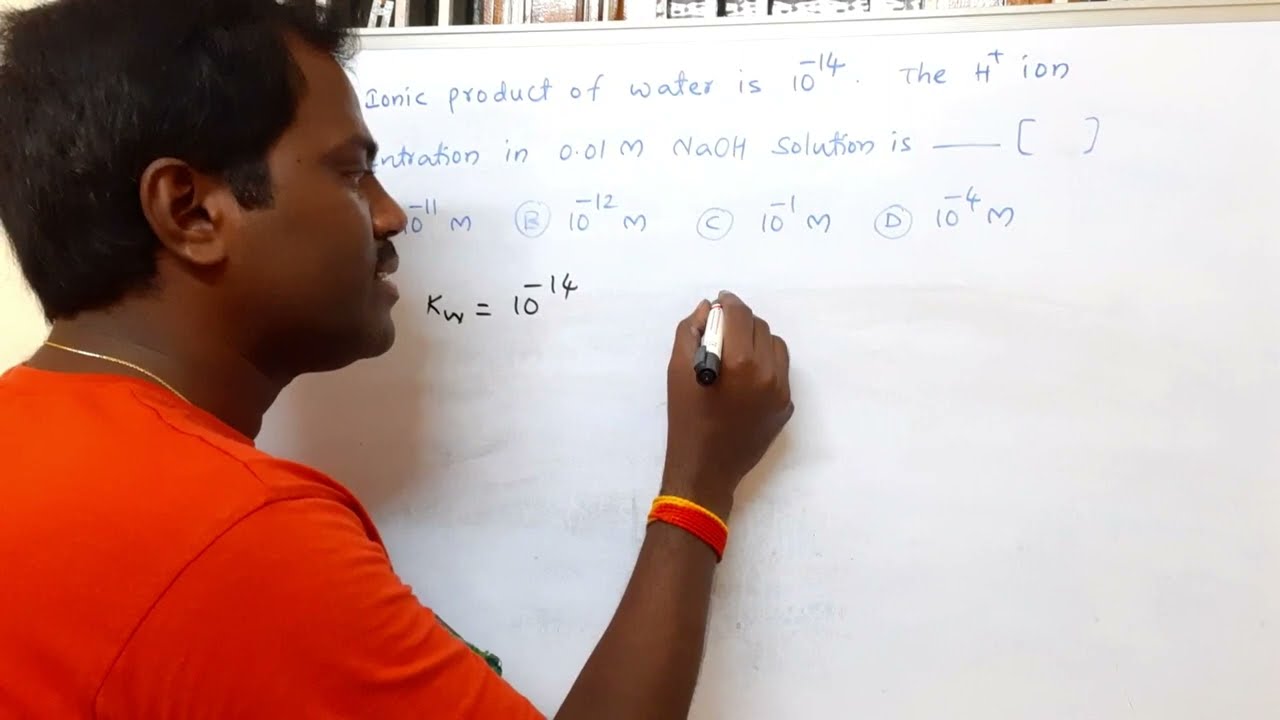 Ionic product of water is 10⁻¹⁴. The H⁺ ion
ntration in 0.01 M NaOH Solution is —— [ ]
10⁻¹¹ M (B) 10⁻¹² M (C) 10⁻¹ M (D) 10⁻⁴ M
Kw = 10⁻¹⁴